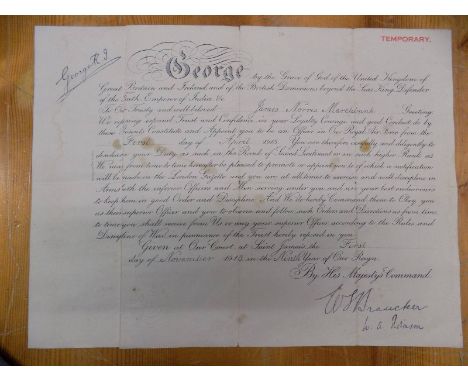 TEMPORARY.
George R.I.
George by the Grace of God of the United Kingdom of
Great Britain and Ireland and of the British Dominions beyond the Seas King, Defender
of the Faith, Emperor of India &c.
To Our Trusty and well beloved James Norris Greeting:
We reposing especial Trust and Confidence in your Loyalty Courage and good Conduct do by
these Presents Constitute and Appoint you to be an Officer in Our Royal Air Force from the
First day of April 1918. You are therefore carefully and diligently to
discharge your Duty as such in the Rank of Second Lieutenant or in such higher Rank as
We may from time to time hereafter be pleased to promote or appoint you to of which a notification
will be made in the London Gazette and you are at all times to exercise and well discipline in
Arms both the inferior Officers and Men serving under you and use your best endeavours
to keep them in good Order and Discipline. And We do hereby Command them to Obey you
as their superior Officer and you to observe and follow such Orders and Directions as from time
to time you shall receive from Us or any your superior Officer according to the Rules and
Discipline of War in pursuance of the Trust hereby reposed in you.
Given at Our Court, at Saint James's, the First
day of November 1918 in the Ninth Year of Our Reign
By His Majesty's Command.